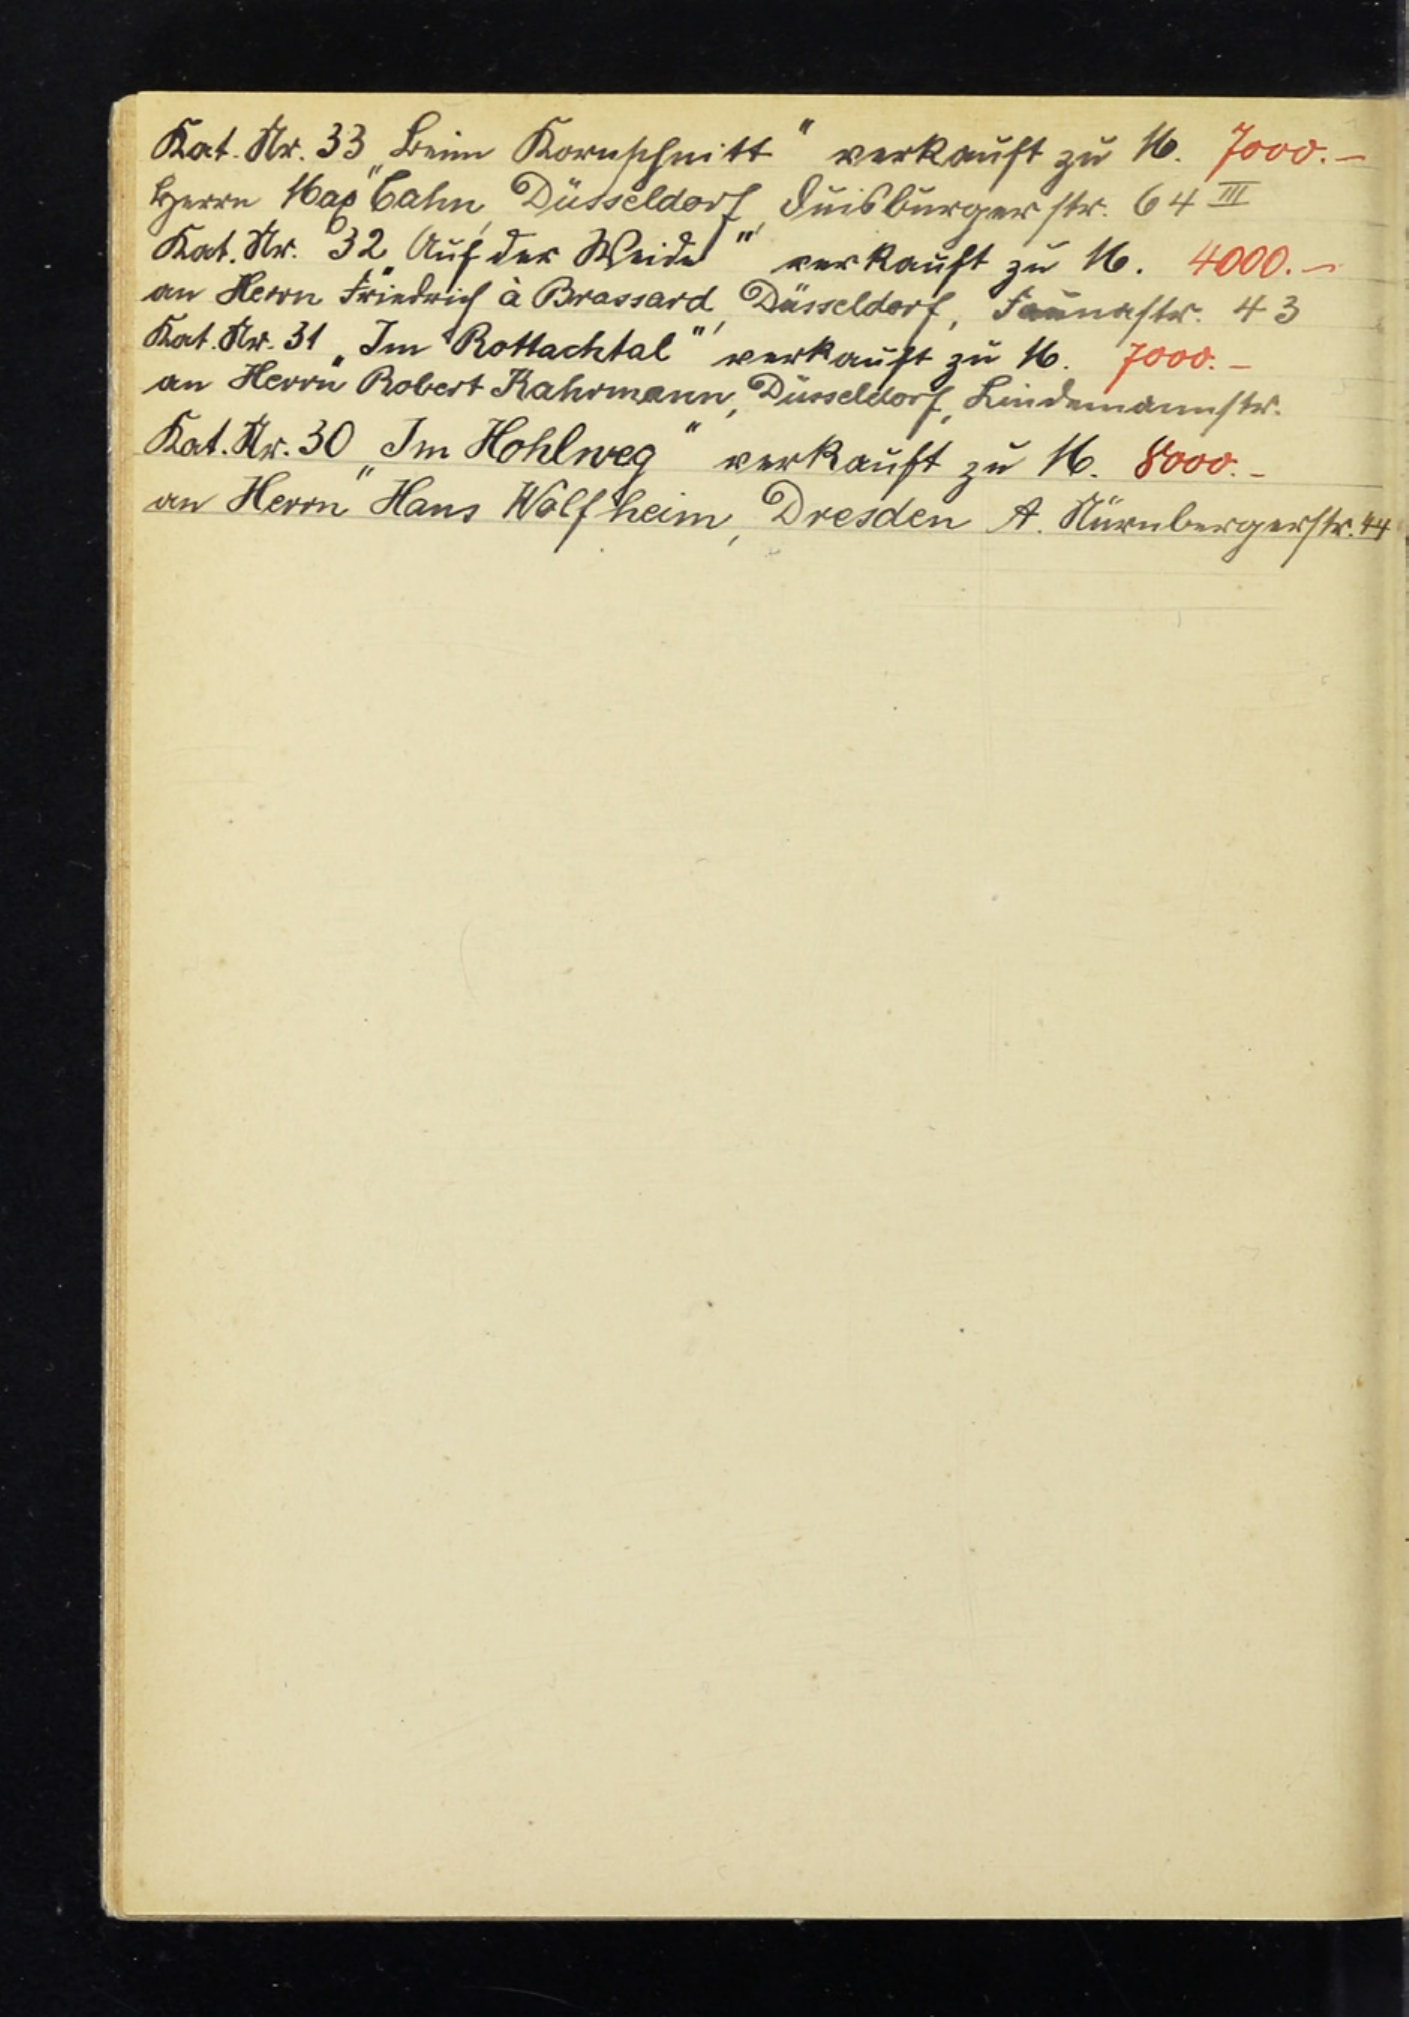 Kat. Nr. 33 „Beim Kornschnitt“ verkauft zu M. 7000.–
Herrn Max Cahn, Düsseldorf, Duisburgerstr. 64 III
Kat. Nr. 32 „Auf der Weide“ verkauft zu M. 4000.–
an Herrn Friedrich à Brassard, Düsseldorf, Faunastr. 43
Kat. Nr. 31 „Im Rottachtal“ verkauft zu M. 7000.–
an Herrn Robert Kahrmann, Düsseldorf, Lindemannstr.
Kat. Nr. 30 „Im Hohlweg“ verkauft zu M. 8000.–
an Herrn Hans Wolfheim, Dresden A. Nürnbergerstr. 44